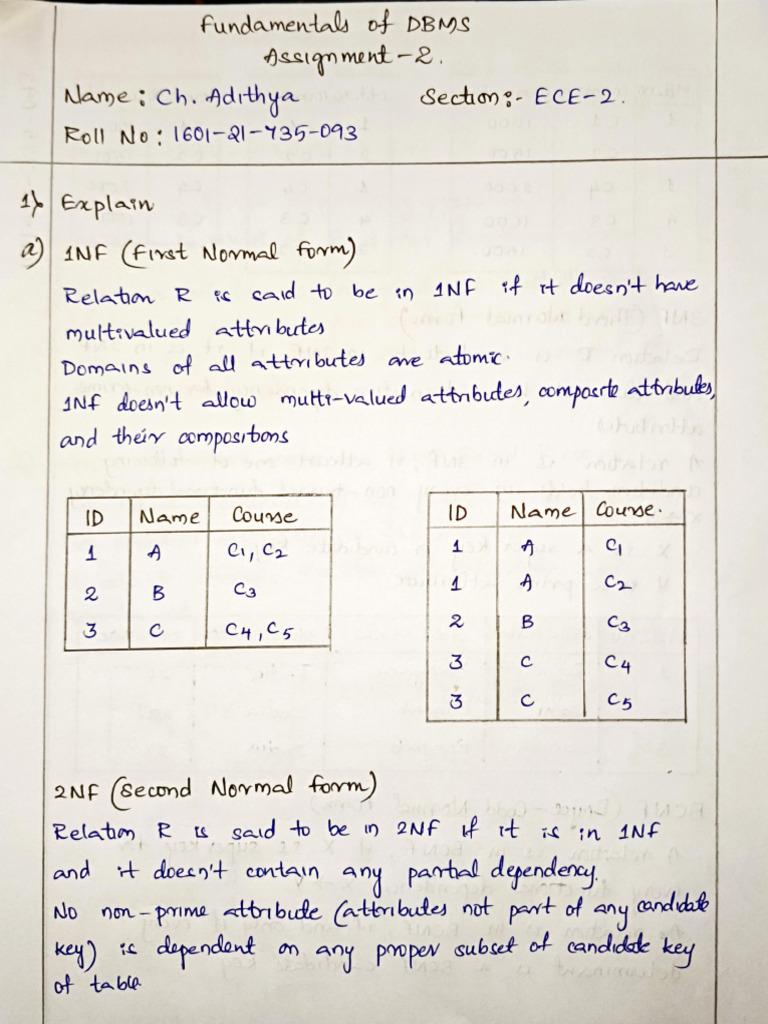 Fundamentals of DBMS
Assignment-2.
Name: Ch. Adithya Section:- ECE-2.
Roll No: 1601-21-735-093
1). Explain
a) 1NF (First Normal Form)
Relation R is said to be in 1NF if it doesn't have
multivalued attributes
Domains of all attributes are atomic.
1NF doesn't allow multi-valued attributes, composite attributes,
and their compositions
ID Name Course
1 A C1, C2
2 B C3
3 C C4, C5
ID Name Course.
1 A C1
1 A C2
2 B C3
3 C C4
3 C C5
2NF (Second Normal Form)
Relation R is said to be in 2NF if it is in 1NF
and it doesn't contain any partial dependency.
No non-prime attribute (attributes not part of any candidate
key) is dependent on any proper subset of candidate key
of table